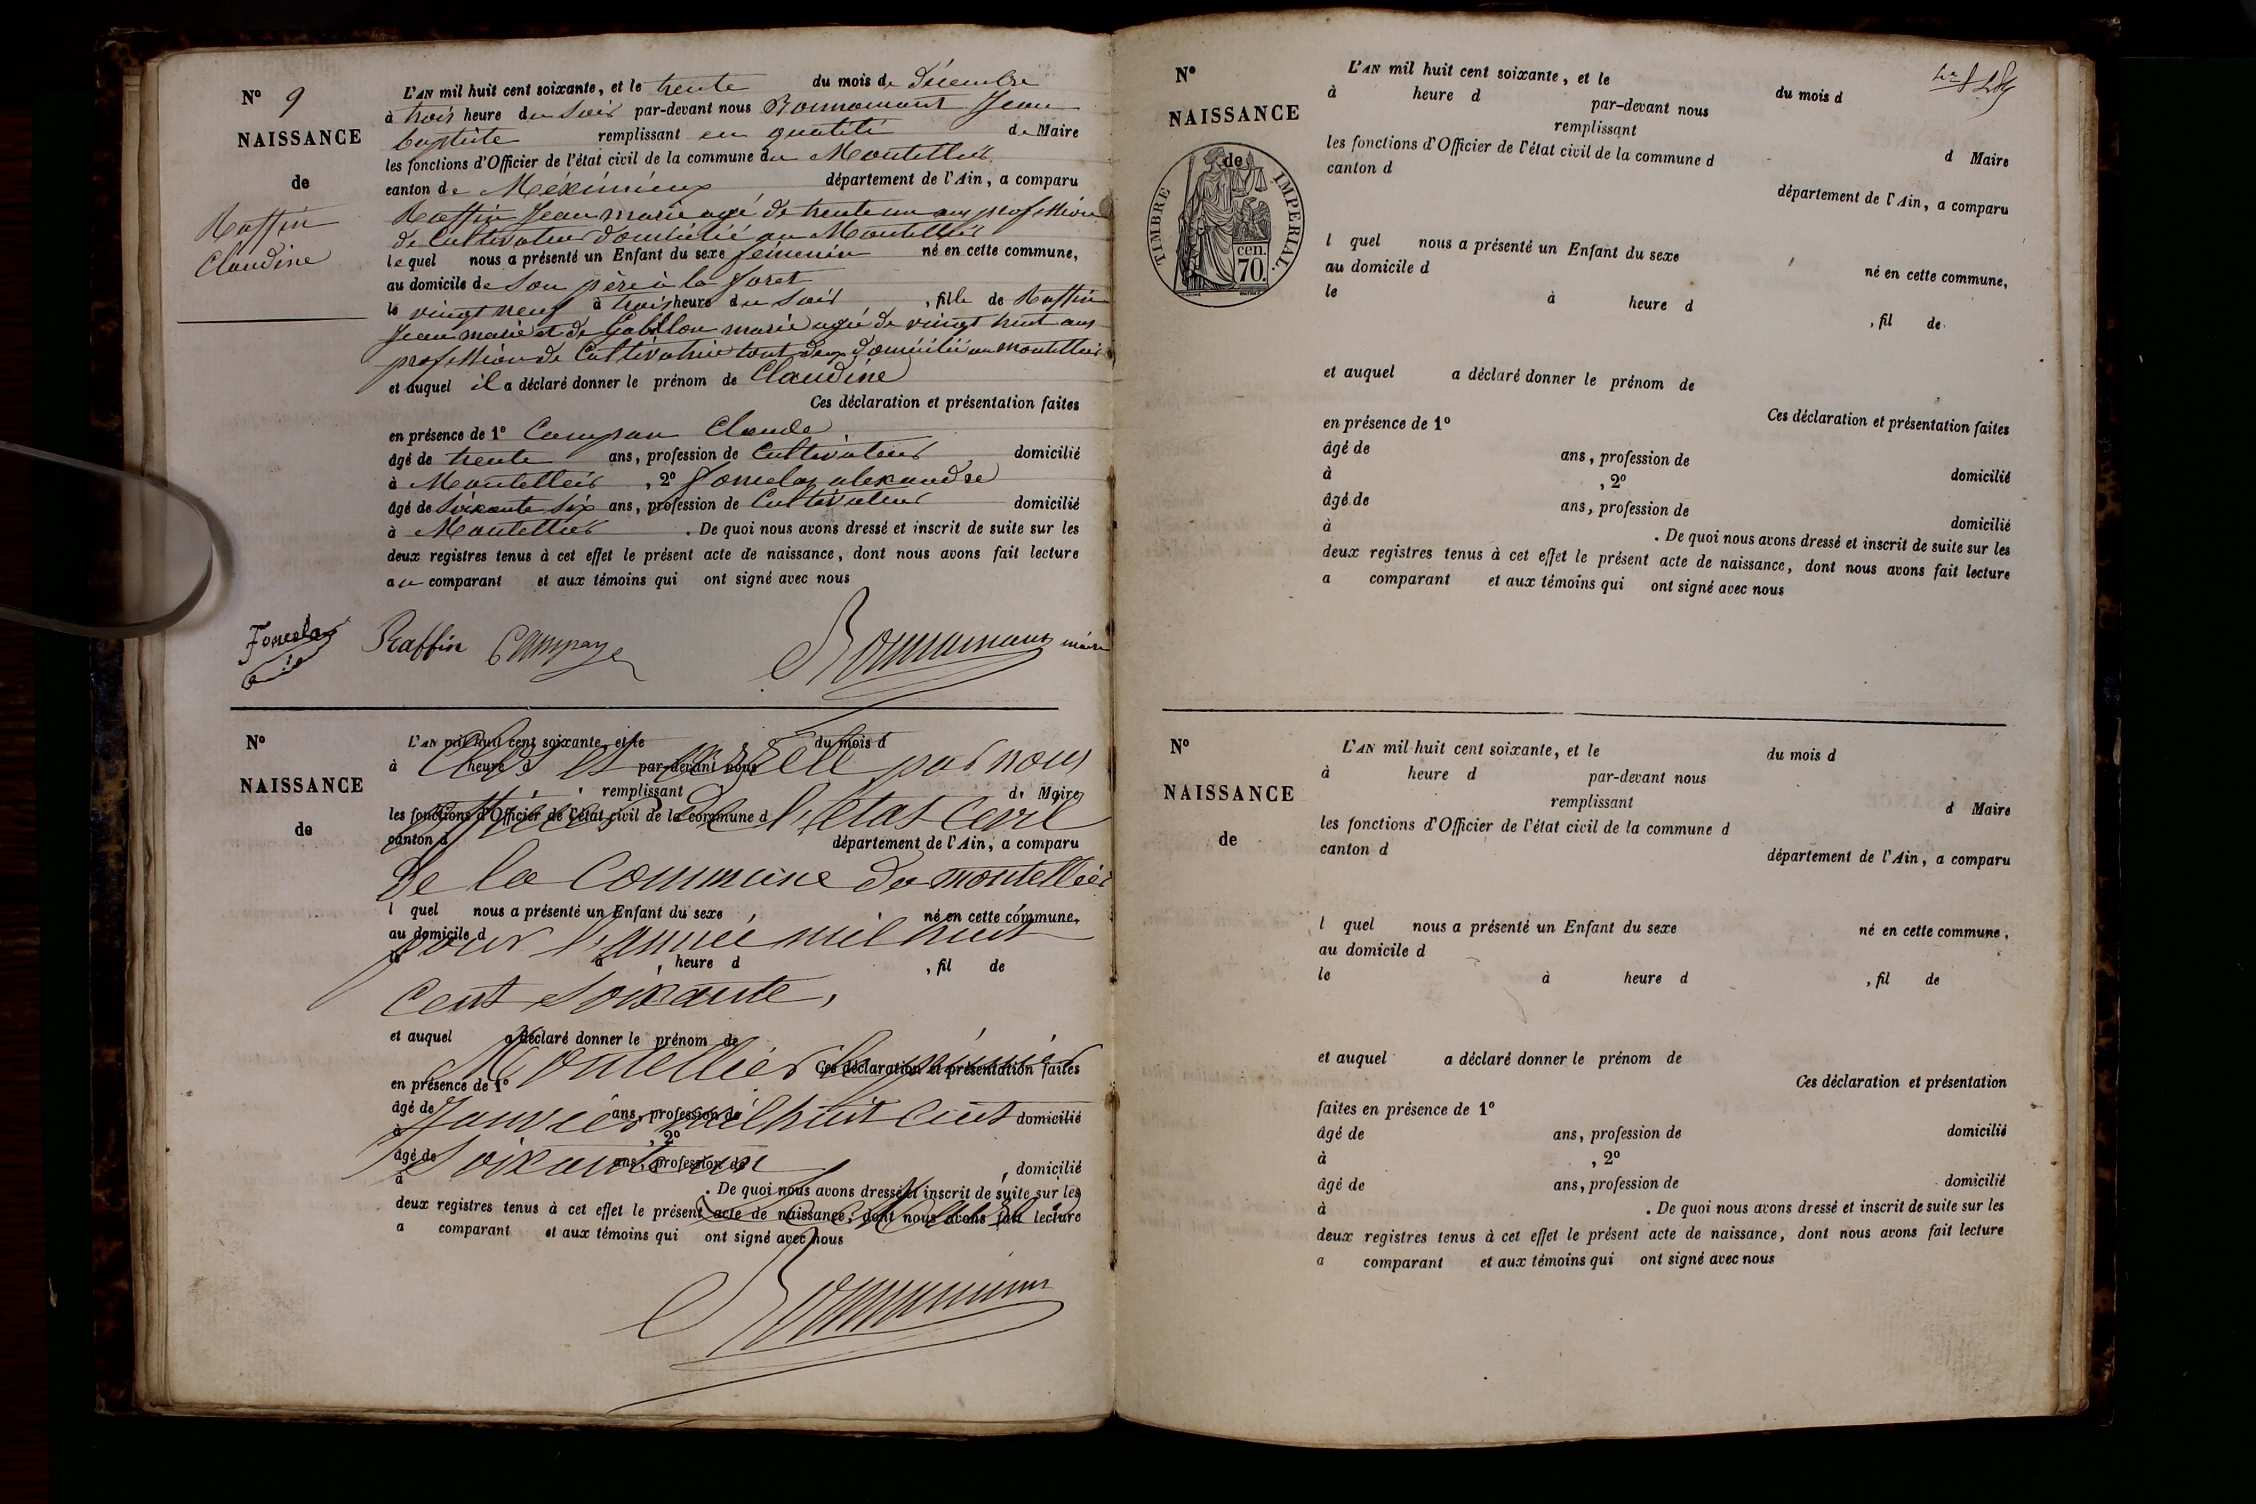 N° 9
NAISSANCE
de
Raffin
Claudine
L'AN mil huit cent soixante, et le trente du mois de Décembre
à trois heure du soir par-devant nous Bonnamant Jean
baptiste remplissant en qualité de Maire
les fonctions d'Officier de l'état civil de la commune du Montellier
canton de Méximieux département de l'Ain, a comparu
Raffin Jean marie agé de trente un ans profession
de Cultivateur domicilié au Montellier
lequel nous a présenté un Enfant du sexe féminin né en cette commune,
au domicile de son père à la foret
le vingt neuf à trois heure du soir, fille de Raffin
Jean marie et de Gabillon marie agée de vingt huit ans
profession de Cultivatrice tout deux domicilié au montellier
et auquel il a déclaré donner le prénom de Claudine
Ces déclaration et présentation faites
en présence de 1° Campan Claude
âgé de trente ans, profession de Cultivateur domicilié
à Montellier, 2° alexandre
âgé de Soixante six ans, profession de Cultivateur domicilié
à Montellier. De quoi nous avons dressé et inscrit de suite sur les
deux registres tenus à cet effet le présent acte de naissance, dont nous avons fait lecture
au comparant et aux témoins qui ont signé avec nous
Raffin Bonnamant maire
N°
NAISSANCE
de
L'AN mil huit cent soixante, et le du mois d
à heure d par-devant nous
remplissant d Maire
les fonctions d'Officier de l'état civil de la commune d
canton d département de l'Ain, a comparu
l quel nous a présenté un Enfant du sexe né en cette commune,
au domicile d
le à heure d , fil de
et auquel a déclaré donner le prénom de
Ces déclaration et présentation faites
en présence de 1°
âgé de ans, profession de domicilié
à , 2°
âgé de ans, profession de domicilié
à . De quoi nous avons dressé et inscrit de suite sur les
deux registres tenus à cet effet le présent acte de naissance, dont nous avons fait lecture
a comparant et aux témoins qui ont signé avec nous
Clos et arrêté par nous
officier de l'état civil
de la Commune du montellier
pour l'année mil huit
Cent soixante,
Montellier le premier
Janvier mil huit cent
Soixante un
Le Maire
Bonnamant
N°
NAISSANCE
de
TIMBRE IMPERIAL
cen.
70.
L'AN mil huit cent soixante, et le du mois d
à heure d par-devant nous
remplissant d Maire
les fonctions d'Officier de l'état civil de la commune d
canton d département de l'Ain, a comparu
l quel nous a présenté un Enfant du sexe né en cette commune,
au domicile d
le à heure d , fil de
et auquel a déclaré donner le prénom de
Ces déclaration et présentation faites
en présence de 1°
âgé de ans, profession de domicilié
à , 2°
âgé de ans, profession de domicilié
à . De quoi nous avons dressé et inscrit de suite sur les
deux registres tenus à cet effet le présent acte de naissance, dont nous avons fait lecture
a comparant et aux témoins qui ont signé avec nous
N°
NAISSANCE
de
L'AN mil huit cent soixante, et le du mois d
à heure d par-devant nous
remplissant d Maire
les fonctions d'Officier de l'état civil de la commune d
canton d département de l'Ain, a comparu
l quel nous a présenté un Enfant du sexe né en cette commune,
au domicile d
le à heure d , fil de
et auquel a déclaré donner le prénom de
Ces déclaration et présentation
faites en présence de 1°
âgé de ans, profession de domicilié
à , 2°
âgé de ans, profession de domicilié
à . De quoi nous avons dressé et inscrit de suite sur les
deux registres tenus à cet effet le présent acte de naissance, dont nous avons fait lecture
a comparant et aux témoins qui ont signé avec nous